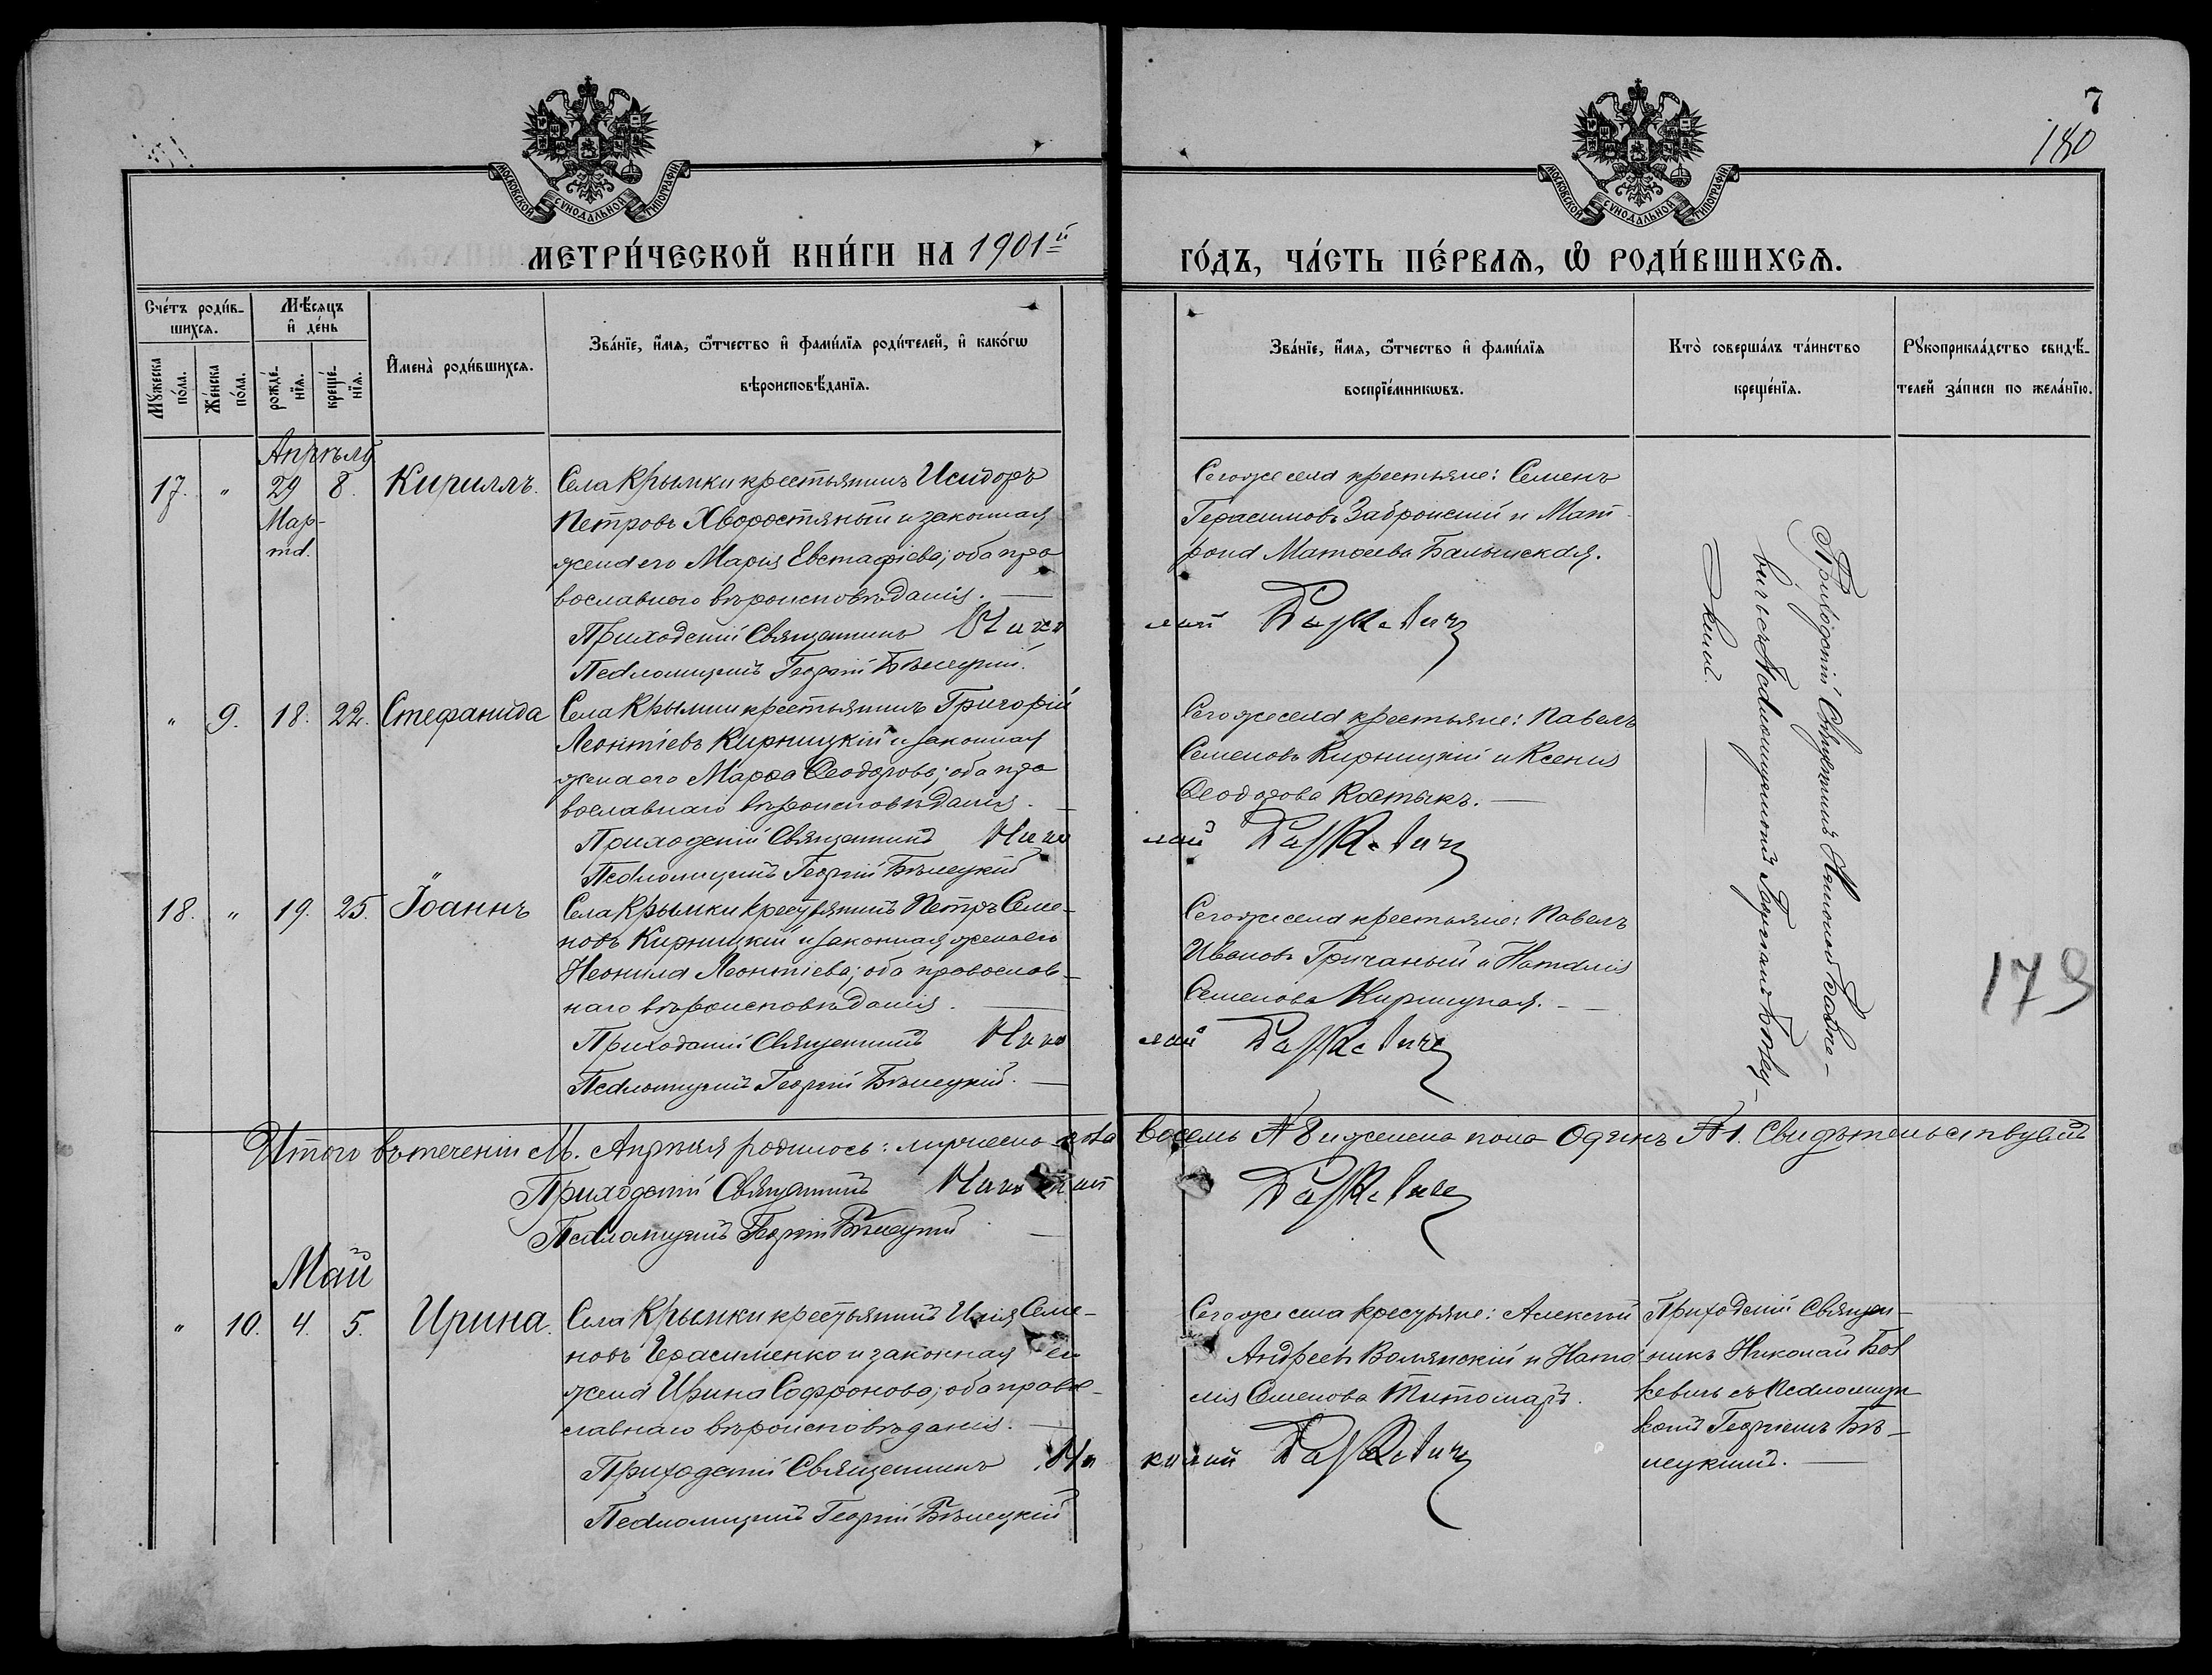 7
180
МОСКОВСКОЙ СѴНОДАЛЬНОЙ ТИПОГРАФІИ
МОСКОВСКОЙ СѴНОДАЛЬНОЙ ТИПОГРАФІИ
МЕТРИ́ЧЕСКОЙ КНИ́ГИ НА 1901й
ГО́ДЪ, ЧА́СТЬ ПЕ́РВАѦ, Ѡ҆ РОДИ́ВШИХСѦ.
Сче́тъ роди́в-
шихсѧ.
Мꙋ́жеска
по́ла.
Же́нска
по́ла.
Мѣ́сѧцъ
и҆ де́нь
рожде́-
нїѧ.
креще́-
нїѧ.
И҆мена̀ роди́вшихсѧ.
Зва́нїе, и҆́мѧ, ѻ҆́тчество и҆ фами́лїѧ роди́телей, и҆ како́гѡ
вѣроисповѣ́данїѧ.
Зва́нїе, и҆́мѧ, ѻ҆́тчество и҆ фами́лїѧ
воспрїе́мникѡвъ.
Кто̀ соверша́лъ та́инство
креще́нїѧ.
Рꙋкоприкла́дство свидѣ́-
телей за́писи по жела́нїю.
Апрѣль
17. " 29 8. Кириллъ.
Мар-
та.
Села Крымки крестьянинъ Исидоръ
Петровъ Хворостяный и законная
жена его Марія Евстафіева; оба пра
вославнаго вѣроисповѣданія.
Приходскій Священникъ Нико
Псаломщикъ Георгій Бѣлецкій.
Тогоже села крестьяне: Семенъ
Герасимовъ Забронскій и Мат
рона Матѳеева Балынская.
лай Базкевичъ
Приходскій Священникъ Николай Базке-
вичъ съ Псаломщикомъ Георгіемъ Бѣлец-
кимъ.
" 9. 18. 22. Стефанида
Села Крымки крестьянинъ Григорій
Леонтіевъ Кирницкій и законная
жена его Марѳа Ѳеодорова; оба пра
вославнаго вѣроисповѣданія.
Приходскій Священникъ Нико
Псаломщикъ Георгій Бѣлецкій
Тогоже села крестьяне: Павелъ
Семеновъ Кирницкій и Ксенія
Ѳеодорова Костыкъ.
лай Базкевичъ
18. " 19. 25. Іоаннъ
Села Крымки крестьянинъ Петръ Семе-
новъ Кирницкій и законная жена его
Неонила Леонтіева; оба православ-
наго вѣроисповѣданія.
Приходскій Священникъ Нико
Псаломщикъ Георгій Бѣлецкій.
Тогоже села крестьяне: Павелъ
Ивановъ Гричаный и Наталія
Семенова Кирницкая.
лай Базкевичъ
179
Итого въ теченіи М. Апрѣля родилось: мужеска пола восемь 8 и женска пола Одинъ 1. Свидѣтельствуемъ
Приходскій Священникъ Николай Базкевичъ
Псаломщикъ Георгій Бѣлецкій
Май
" 10. 4. 5. Ирина.
Села Крымки крестьянинъ Илія Семе-
новъ Герасименко и законная его
жена Ирина Софронова; оба право-
славнаго вѣроисповѣданія.
Приходскій Священникъ Ни
Псаломщикъ Георгій Бѣлецкій
Тогоже села крестьяне: Алексѣй
Андреевъ Волянскій и Ната
лія Семенова Титомаръ.
колай Базкевичъ
Приходскій Священ-
никъ Николай Баз
кевичъ съ Псаломщи
комъ Георгіемъ Бѣ-
лецкимъ.